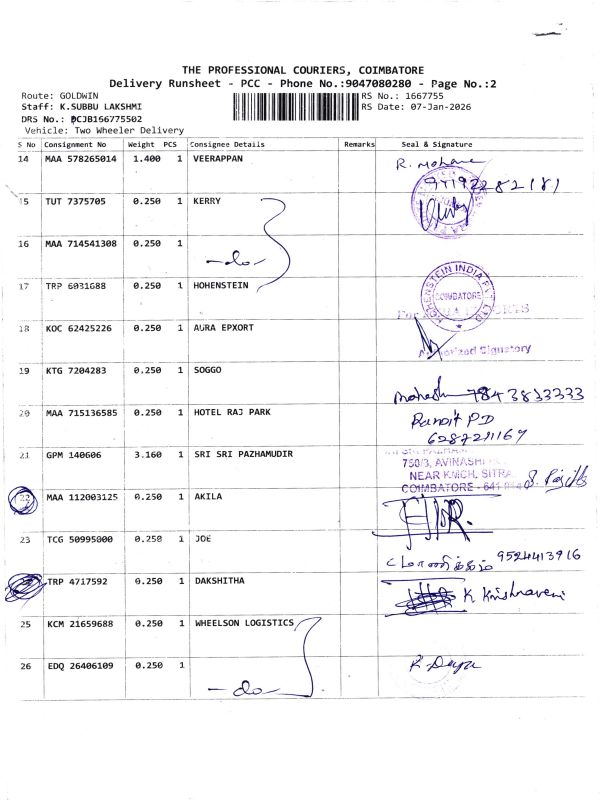 THE PROFESSIONAL COURIERS, COIMBATORE
Delivery Runsheet - PCC - Phone No.:9047080280 - Page No.:2
Route: GOLDWIN
Staff: K.SUBBU LAKSHMI
DRS No.: PCJB166775502
Vehicle: Two Wheeler Delivery
RS No.: 1667755
RS Date: 07-Jan-2026
S No Consignment No Weight PCS Consignee Details Remarks Seal & Signature
14 MAA 578265014 1.400 1 VEERAPPAN R. Mohana
15 TUT 7375705 0.250 1 KERRY
16 MAA 714541308 0.250 1 -do-
17 TRP 6031688 0.250 1 HOHENSTEIN HOHENSTEIN INDIA PVT LTD COIMBATORE
18 KOC 62425226 0.250 1 AURA EPXORT
Authorized Signatory
19 KTG 7204283 0.250 1 SOGGO Mahesh 7843833333
20 MAA 715136585 0.250 1 HOTEL RAJ PARK PD
21 GPM 140606 3.160 1 SRI SRI PAZHAMUDIR
750/3, AVINASHI
NEAR KMCH, SITRA
COIMBATORE - 641
22 MAA 112003125 0.250 1 AKILA
23 TCG 50995000 0.250 1 JOE 9524413916
TRP 4717592 0.250 1 DAKSHITHA K Krishnaveni
25 KCM 21659688 0.250 1 WHEELSON LOGISTICS
26 EDQ 26406109 0.250 1 -do-